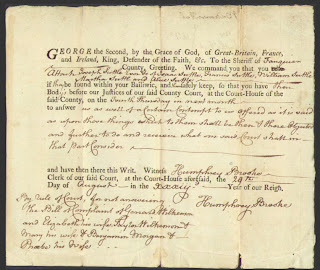 GEORGE the Second, by the Grace of God, of Great-Britain, France,
and Ireland, King, Defender of the Faith, &c. To the Sheriff of Fauquier
County, Greeting. We command you that you
Attach Joseph Settle William Settle
Settle and Settle
if they be found within your Bailiwic, and safely keep, so that you have their
Bod before our Justices of our said County Court, at the Court-House of the
said County, on the Fourth Thursday in next month
to answer us as well of a Certain Contempt to us offered as it is said
as upon those things which to them shall be then & there Objected
and further to do and receive what our said Court shall in
that Part Consider
and have then there this Writ. Witness Humphrey Brooke
Clerk of our said Court, at the Court-House aforesaid, the 29th
Day of August in the xxxiij Year of our Reign.
Humphrey Brooke
By rule of Court, for not answering
the Bill of Complaint of
and Elizabeth his wife,
Mary his wife & Benjamin Morgan &
his Wife